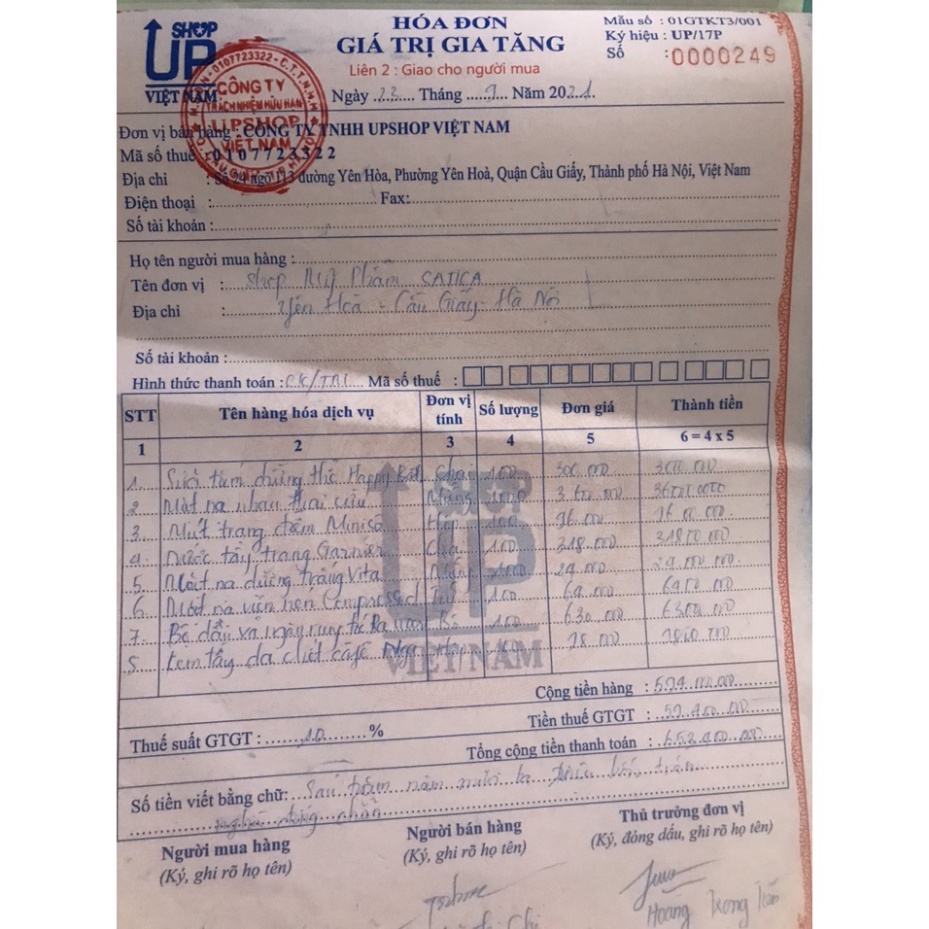 SHOP
UP
VIỆT NAM
HÓA ĐƠN
GIÁ TRỊ GIA TĂNG
Liên 2 : Giao cho người mua
Ngày 23 Tháng 9 Năm 2021
Mẫu số : 01GTKT3/001
Ký hiệu : UP/17P
Số :0000249
CÔNG TY
TRÁCH NHIỆM HỮU HẠN
UPSHOP
VIỆT NAM
Đơn vị bán hàng : CÔNG TY TNHH UPSHOP VIỆT NAM
Mã số thuế : 0107723322
Địa chỉ : Số 24 ngõ 113 đường Yên Hòa, Phường Yên Hoà, Quận Cầu Giấy, Thành phố Hà Nội, Việt Nam
Điện thoại : Fax:
Số tài khoản :
Họ tên người mua hàng :
Tên đơn vị : Shop Mỹ Phẩm SATICA
Địa chỉ : Yên Hoà - Cầu Giấy - Hà Nội
Số tài khoản :
Hình thức thanh toán : CK/TM Mã số thuế :
STT Tên hàng hóa dịch vụ Đơn vị tính Số lượng Đơn giá Thành tiền
1 2 3 4 5 6 = 4 x 5
1 Sữa tắm dưỡng thể Happy Chai 100 300.000
2 Mặt nạ nhau thai cừu 
3 Mút trang điểm Miniso Hộp 100 
4 Nước tẩy trang Garnier 100 318.000
5 Mặt nạ dưỡng trắng Vita 29.000
6 Mặt nạ viên nén Compressed 100
7 100 630.000
8 Kem tẩy da chết cafe 78.000
SHOP
UP
VIỆT NAM
Cộng tiền hàng : 594.000.000
Thuế suất GTGT : 10 % Tiền thuế GTGT : 59.400.000
Tổng cộng tiền thanh toán : 653.400.000
Số tiền viết bằng chữ: Sáu trăm năm mươi ba triệu bốn trăm
nghìn đồng chẵn
Người mua hàng
(Ký, ghi rõ họ tên)
Người bán hàng
(Ký, ghi rõ họ tên)
Thủ trưởng đơn vị
(Ký, đóng dấu, ghi rõ họ tên)
Hoàng Trọng